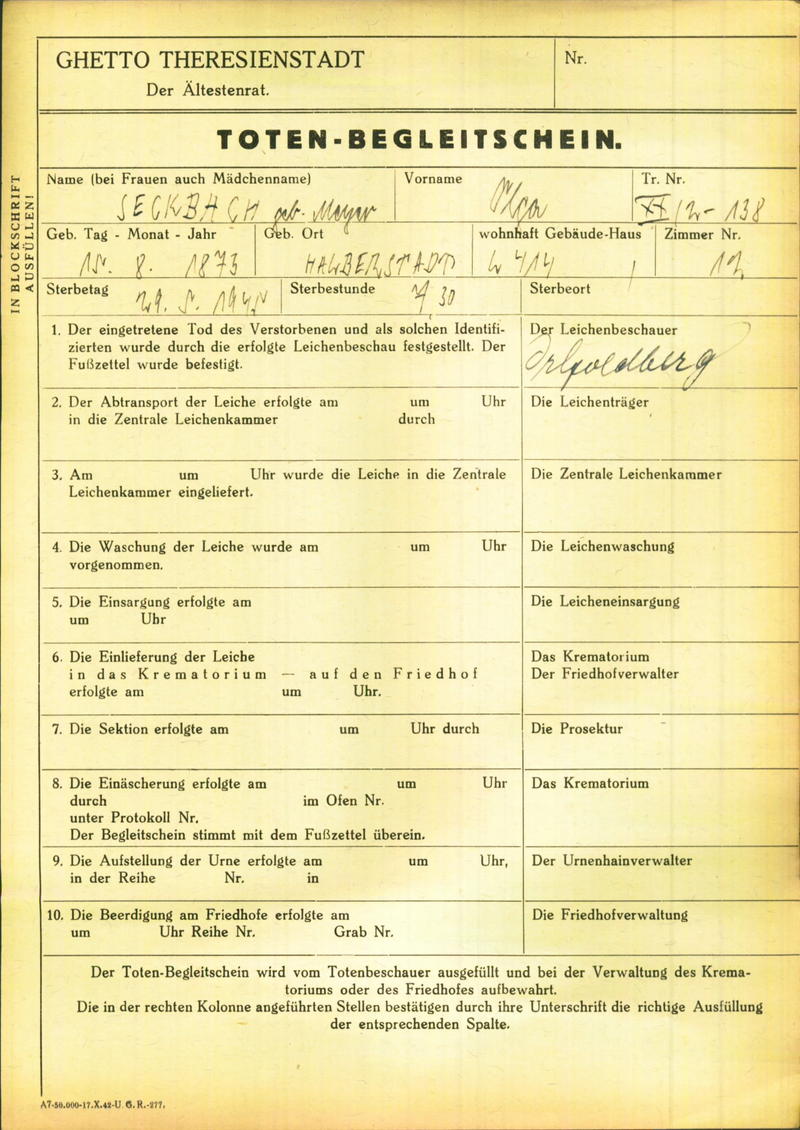 GHETTO THERESIENSTADT
Der Ältestenrat.
Nr.
IN BLOCKSCHRIFT
AUSFÜLLEN!
TOTEN-BEGLEITSCHEIN.
Name (bei Frauen auch Mädchenname)
Vorname
Tr. Nr.
SECKBACH geb. Meyer
Olga
XX/2- 138
Geb. Tag - Monat - Jahr
Geb. Ort
wohnhaft Gebäude-Haus
Zimmer Nr.
15. 8. 1873
HALBERSTADT
L 414
12
Sterbetag
Sterbestunde
Sterbeort
29. 5. 1944
1. Der eingetretene Tod des Verstorbenen und als solchen Identifi-
zierten wurde durch die erfolgte Leichenbeschau festgestellt. Der
Fußzettel wurde befestigt.
Der Leichenbeschauer
Goldberg
2. Der Abtransport der Leiche erfolgte am um Uhr
in die Zentrale Leichenkammer durch
Die Leichenträger
3. Am um Uhr wurde die Leiche in die Zentrale
Leichenkammer eingeliefert.
Die Zentrale Leichenkammer
4. Die Waschung der Leiche wurde am um Uhr
vorgenommen.
Die Leichenwaschung
5. Die Einsargung erfolgte am
um Uhr
Die Leicheneinsargung
6. Die Einlieferung der Leiche
in das Krematorium — auf den Friedhof
erfolgte am um Uhr.
Das Krematorium
Der Friedhofverwalter
7. Die Sektion erfolgte am um Uhr durch
Die Prosektur
8. Die Einäscherung erfolgte am um Uhr
durch im Ofen Nr.
unter Protokoll Nr.
Der Begleitschein stimmt mit dem Fußzettel überein.
Das Krematorium
9. Die Aufstellung der Urne erfolgte am um Uhr,
in der Reihe Nr. in
Der Urnenhainverwalter
10. Die Beerdigung am Friedhofe erfolgte am
um Uhr Reihe Nr. Grab Nr.
Die Friedhofverwaltung
Der Toten-Begleitschein wird vom Totenbeschauer ausgefüllt und bei der Verwaltung des Krema-
toriums oder des Friedhofes aufbewahrt.
Die in der rechten Kolonne angeführten Stellen bestätigen durch ihre Unterschrift die richtige Ausfüllung
der entsprechenden Spalte.
A7-50.000-17.X.42-U. G. R.-277.